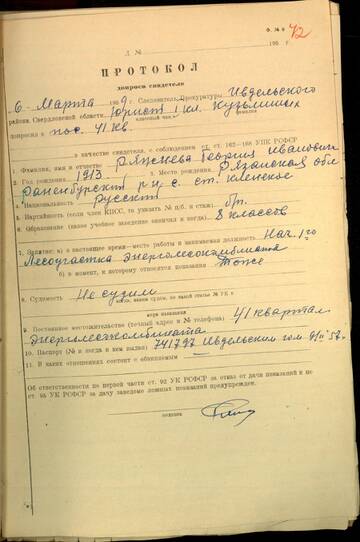 Ф. № 9
72
Л. №
195 г
ПРОТОКОЛ
допроса свидетеля
6 Марта 1959 г. Следователь Прокуратуры Ивдельского
района, Свердловской области Юрист I кл. Кузьминых
классный чин фамилия
допросил в пос. 41 Кв.
в качестве свидетеля, с соблюдением ст. ст. 162—168 УПК РСФСР
1. Фамилия, имя и отчество Ряжнева Георгия Ивановича
2. Год рождения 1913 3. Место рождения Рязанская обл
Раненбургский р-н с. ст. Кленское
4. Национальность Русский
5. Партийность (если член КПСС, то указать № п/б. и стаж) бп.
6. Образование (какое учебное заведение окончил и когда) 8 классов
7. Занятие: а) в настоящее время—место работы и занимаемая должность Нач. 1го
Лесоучастка Энерголесокомбината
б) в момент, к которому относятся показания Тоже
8. Судимость Не судим
когда, каким судом, по какой статье УК и
мера наказания
9. Постоянное местожительство (точный адрес и № телефона) 41 квартал
Энерголескомбината
10. Паспорт (№ и когда и кем выдан) 741797 Ивдельским гом
11. В каких отношениях состоит с обвиняемым —
Об ответственности по первой части ст. 92 УК РСФСР за отказ от дачи показаний и по
ст. 95 УК РСФСР за дачу заведомо ложных показаний предупрежден.
подпись